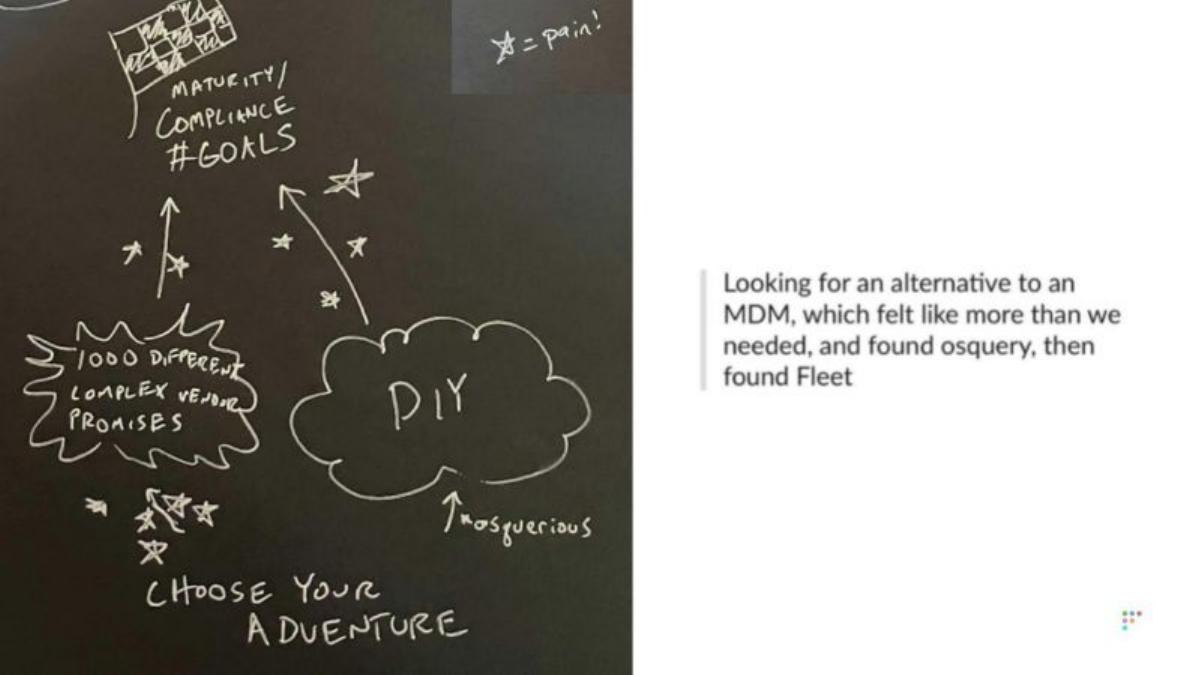 ☆ = pain!
MATURITY/
COMPLIANCE
#GOALS
1000 DIFFERENT
COMPLEX VENDOR
PROMISES
DIY
osquerious
CHOOSE YOUR
ADVENTURE
Looking for an alternative to an
MDM, which felt like more than we
needed, and found osquery, then
found Fleet